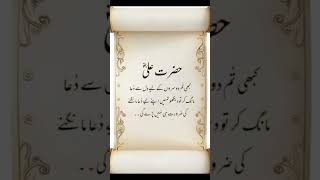 حضرت علیؓ
کبھی تم دوسروں کے لیے دل سے دُعا
مانگ کر تو دیکھو تمہیں اپنے لیے دُعا مانگنے
کی ضرورت ہی نہیں پڑے گی۔۔